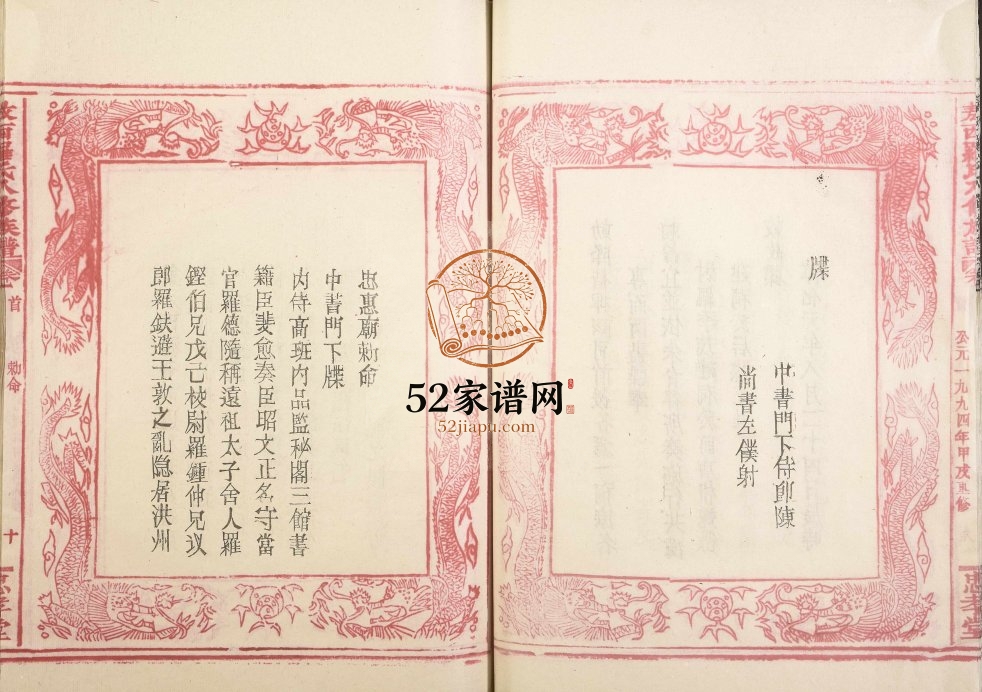 牒
中書門下侍郎陳
尚書左僕射
公元一九九四年甲戌重修
忠惠廟勅命
中書門下牒
内侍高班内品監秘閣三館書
籍臣斐愈奏臣昭文正名守當
官羅德隨稱遠祖太子舍人羅
鏗伯兄戊己校尉羅鍾仲兄议
郎羅鈇避王敦之亂隐居洪州
首
勅命
十
52家谱网
52jiapu.com